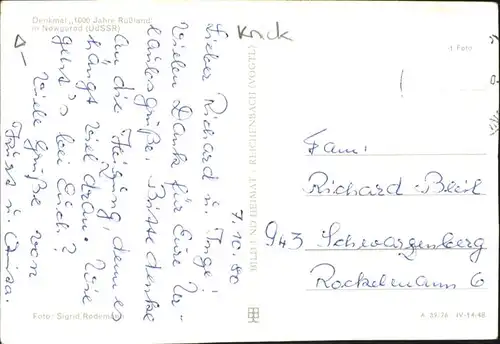 Denkmal „1000 Jahre Rußland"
in Nowgorod (UdSSR)
Krick
7.10.80
Lieber Richard u. Inge!
Vielen Dank für Eure Ur-
laubsgrüße. Bitte denke
an die Heizung, denn es
hängt viel dran. Wie
geht's bei Euch?
Viele Grüße von
BILD UND HEIMAT · REICHENBACH (VOGTL)
Foto
Fam.
Richard Bleil
943 Schwarzenberg
Rockelmann 6
Foto: Sigrid Redemann
A 59/76 IV-14-48